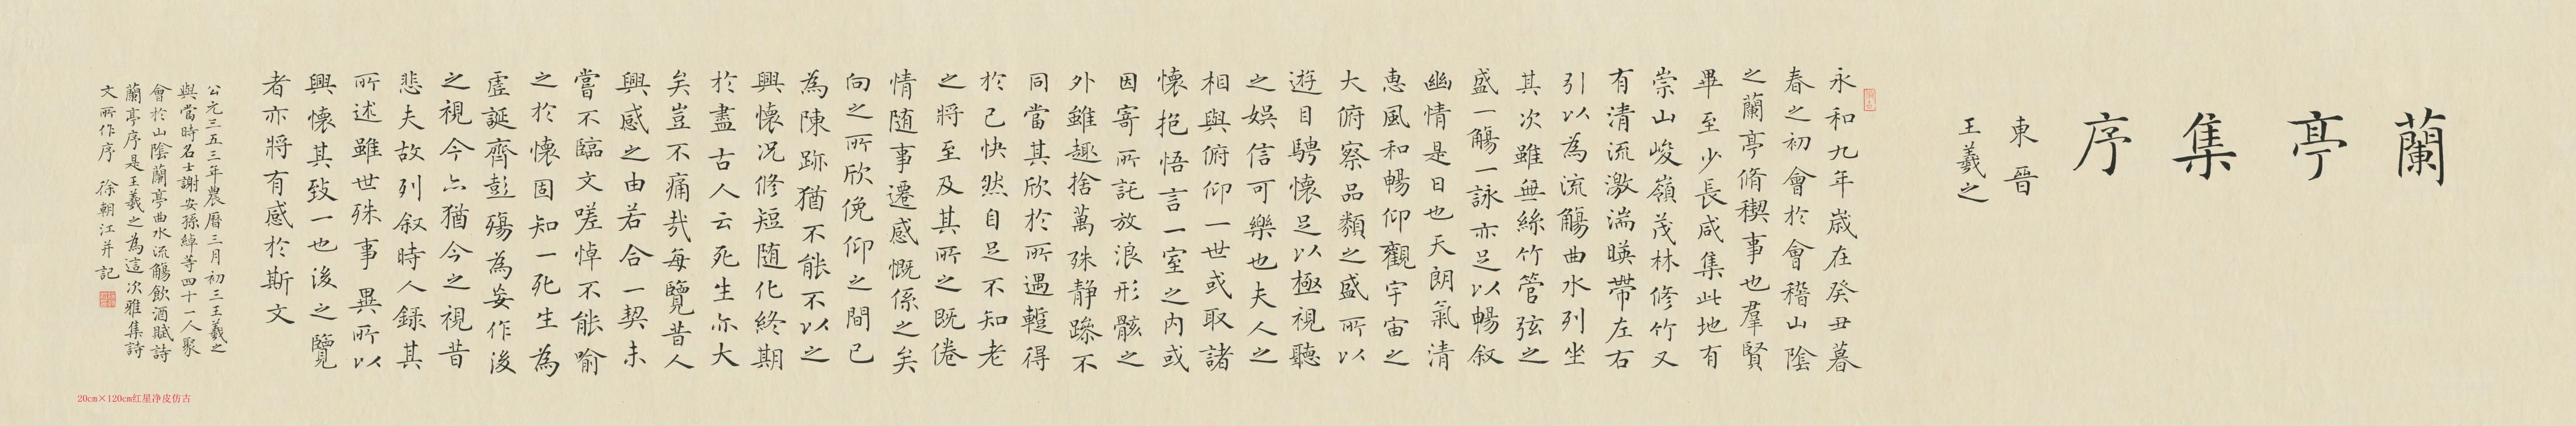 蘭亭集序
東晉
王羲之
永和九年歲在癸丑暮
春之初會於會稽山陰
之蘭亭脩稧事也羣賢
畢至少長咸集此地有
崇山峻嶺茂林修竹又
有清流激湍暎帶左右
引以為流觴曲水列坐
其次雖無絲竹管弦之
盛一觴一詠亦足以暢叙
幽情是日也天朗氣清
惠風和暢仰觀宇宙之
大俯察品類之盛所以
遊目騁懷足以極視聽
之娛信可樂也夫人之
相與俯仰一世或取諸
懷抱悟言一室之內或
因寄所託放浪形骸之
外雖趣捨萬殊静躁不
同當其欣於所遇蹔得
於己快然自足不知老
之將至及其所之既倦
情随事遷感慨係之矣
向之所欣俛仰之間已
為陳跡猶不能不以之
興懷況修短随化終期
於盡古人云死生亦大
矣豈不痛哉每覽昔人
興感之由若合一契未
嘗不臨文嗟悼不能喻
之於懷固知一死生為
虛誕齊彭殤為妄作後
之視今亦猶今之視昔
悲夫故列叙時人録其
所述雖世殊事異所以
興懷其致一也後之覽
者亦將有感於斯文
公元三五三年農曆三月初三王羲之
與當時名士謝安孫綽等四十一人聚
會於山陰蘭亭曲水流觴飲酒賦詩
蘭亭序是王羲之為這次雅集詩
文所作序 徐朝江并記
20cm×120cm红星净皮仿古